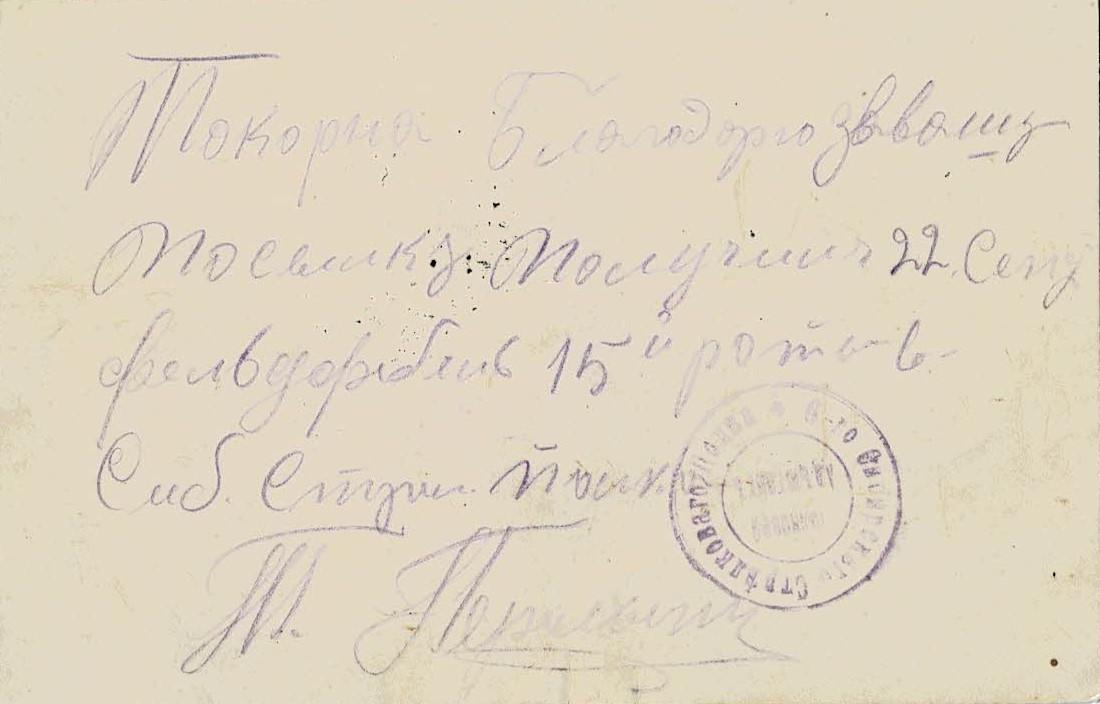 Покорна Благодорю за вашу
Посилку Получил 22. Сент
фельдфебель 15й роты 6
Сиб. Стрел. Полк
П.
6-го Сибирскаго Стрѣлковаго полка